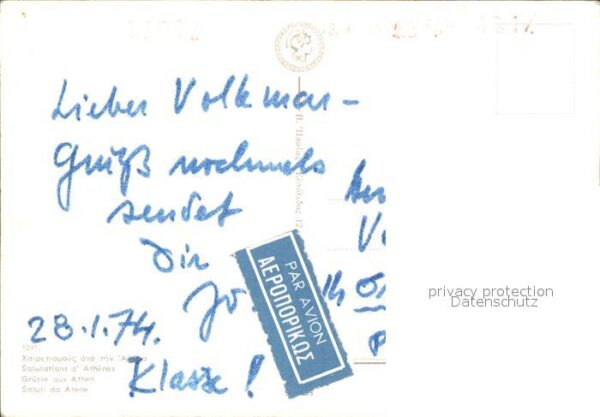 Lieber Volkmar -
Gruß nochmals
sendet
Dir
Jo
28.1.74.
Klasse!
PAR AVION
ΑΕΡΟΠΟΡΙΚΩΣ
Χαιρετισμούς ἀπό τήν
Salutations d' Athènes
Grüsse aus Athen
Saluti da Atene
privacy protection
Datenschutz